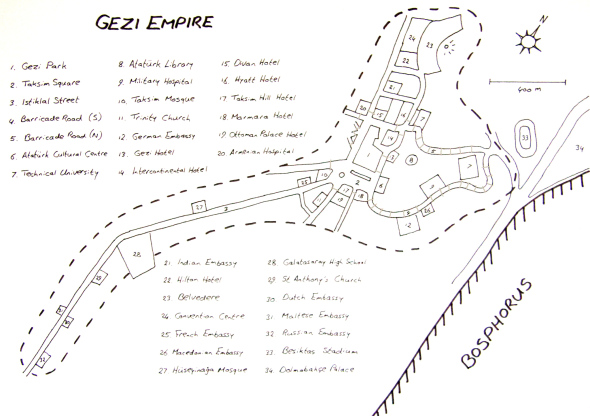 GEZI EMPIRE
N
400 m
1. Gezi Park
2. Taksim Square
3. Istiklal Street
4. Barricade Road (S)
5. Barricade Road (N)
6 Atatürk Cultural Centre
7. Technical University
8. Atatürk Library
9. Military Hospital
10. Taksim Mosque
11. Trinity Church
12 German Embassy
13. Gezi Hotel
14 Intercontinental Hotel
15 Divan Hotel
16. Hyatt Hotel
17 Taksim Hill Hotel
18 Marmara Hotel
19 Ottoman Palace Hotel
20 Armenian Hospital
21 Indian Embassy
22 Hilton Hotel
23 Belvedere
24 Convention Centre
25 French Embassy
26 Macedonian Embassy
27 Hüseyinağa Mosque
28 Galatasaray High School
29 St Anthony's Church
30 Dutch Embassy
31 Maltese Embassy
32 Russian Embassy
33 Besiktas Stadium
34 Dolmabahçe Palace
BOSPHORUS
24
23
22
21
20
15
16
33
34
1
8
2
6
25
12
27
3
28
32